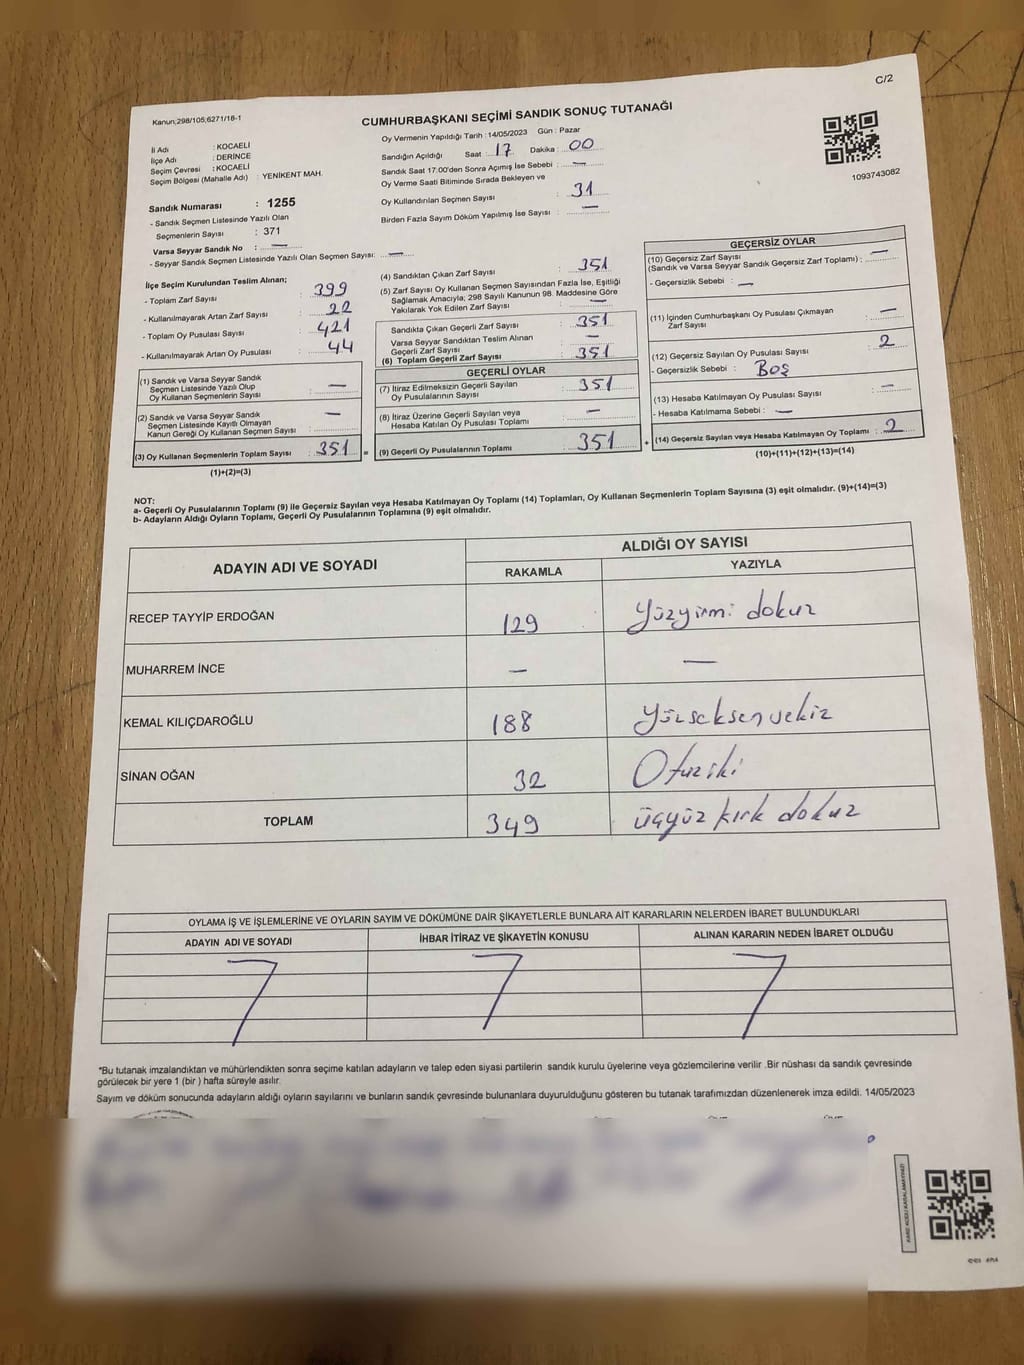 C/2
Kanun;298/105;6271/16-1
CUMHURBAŞKANI SEÇİMİ SANDIK SONUÇ TUTANAĞI
Oy Vermenin Yapıldığı Tarih : 14/05/2023 Gün : Pazar
İl Adı : KOCAELİ
İlçe Adı : DERİNCE
Seçim Çevresi : KOCAELİ
Seçim Bölgesi (Mahalle Adı) : YENİKENT MAH.
Sandığın Açıldığı Saat : 17 Dakika : 00
Sandık Saat 17:00'den Sonra Açımış İse Sebebi : —
Oy Verme Saati Bitiminde Sırada Bekleyen ve
Oy Kullandırılan Seçmen Sayısı : 31
Birden Fazla Sayım Döküm Yapılmış İse Sayısı : —
1093743082
Sandık Numarası : 1255
- Sandık Seçmen Listesinde Yazılı Olan
Seçmenlerin Sayısı : 371
Varsa Seyyar Sandık No : —
- Seyyar Sandık Seçmen Listesinde Yazılı Olan Seçmen Sayısı: —
İlçe Seçim Kurulundan Teslim Alınan;
- Toplam Zarf Sayısı : 399
- Kullanılmayarak Artan Zarf Sayısı : 22
- Toplam Oy Pusulası Sayısı : 421
- Kullanılmayarak Artan Oy Pusulası : 44
(1) Sandık ve Varsa Seyyar Sandık
Seçmen Listesinde Yazılı Olup
Oy Kullanan Seçmenlerin Sayısı : —
(2) Sandık ve Varsa Seyyar Sandık
Seçmen Listesinde Kayıtlı Olmayan
Kanun Gereği Oy Kullanan Seçmen Sayısı : —
(3) Oy Kullanan Seçmenlerin Toplam Sayısı : 351 =
(1)+(2)=(3)
(4) Sandıktan Çıkan Zarf Sayısı : 351
(5) Zarf Sayısı Oy Kullanan Seçmen Sayısından Fazla İse, Eşitliği
Sağlamak Amacıyla; 298 Sayılı Kanunun 98. Maddesine Göre
Yakılarak Yok Edilen Zarf Sayısı : —
Sandıkta Çıkan Geçerli Zarf Sayısı : 351
Varsa Seyyar Sandıktan Teslim Alınan
Geçerli Zarf Sayısı : —
(6) Toplam Geçerli Zarf Sayısı : 351
GEÇERLİ OYLAR
(7) İtiraz Edilmeksizin Geçerli Sayılan
Oy Pusulalarının Sayısı : 351
(8) İtiraz Üzerine Geçerli Sayılan veya
Hesaba Katılan Oy Pusulası Toplamı : —
(9) Geçerli Oy Pusulalarının Toplamı : 351 +
GEÇERSİZ OYLAR
(10) Geçersiz Zarf Sayısı
(Sandık ve Varsa Seyyar Sandık Geçersiz Zarf Toplamı) : —
- Geçersizlik Sebebi : —
(11) İçinden Cumhurbaşkanı Oy Pusulası Çıkmayan
Zarf Sayısı : —
(12) Geçersiz Sayılan Oy Pusulası Sayısı : 2
- Geçersizlik Sebebi : BOŞ
(13) Hesaba Katılmayan Oy Pusulası Sayısı : —
- Hesaba Katılmama Sebebi : —
(14) Geçersiz Sayılan veya Hesaba Katılmayan Oy Toplamı : 2
(10)+(11)+(12)+(13)=(14)
NOT:
a- Geçerli Oy Pusulalarının Toplamı (9) ile Geçersiz Sayılan veya Hesaba Katılmayan Oy Toplamı (14) Toplamları, Oy Kullanan Seçmenlerin Toplam Sayısına (3) eşit olmalıdır. (9)+(14)=(3)
b- Adayların Aldığı Oyların Toplamı, Geçerli Oy Pusulalarının Toplamına (9) eşit olmalıdır.
ADAYIN ADI VE SOYADI
ALDIĞI OY SAYISI
RAKAMLA YAZIYLA
RECEP TAYYİP ERDOĞAN 129 Yüzyirmi dokuz
MUHARREM İNCE — —
KEMAL KILIÇDAROĞLU 188 Yüzseksensekiz
SİNAN OĞAN 32 Otuziki
TOPLAM 349 üçyüz kırk dokuz
OYLAMA İŞ VE İŞLEMLERİNE VE OYLARIN SAYIM VE DÖKÜMÜNE DAİR ŞİKAYETLERLE BUNLARA AİT KARARLARIN NELERDEN İBARET BULUNDUKLARI
ADAYIN ADI VE SOYADI İHBAR İTİRAZ VE ŞİKAYETİN KONUSU ALINAN KARARIN NEDEN İBARET OLDUĞU
*Bu tutanak imzalandıktan ve mühürlendikten sonra seçime katılan adayların ve talep eden siyasi partilerin sandık kurulu üyelerine veya gözlemcilerine verilir .Bir nüshası da sandık çevresinde
görülecek bir yere 1 (bir ) hafta süreyle asılır.
Sayım ve döküm sonucunda adayların aldığı oyların sayılarını ve bunların sandık çevresinde bulunanlara duyurulduğunu gösteren bu tutanak tarafımızdan düzenlenerek imza edildi. 14/05/2023
KARE KODU KARALAMAYINIZ!